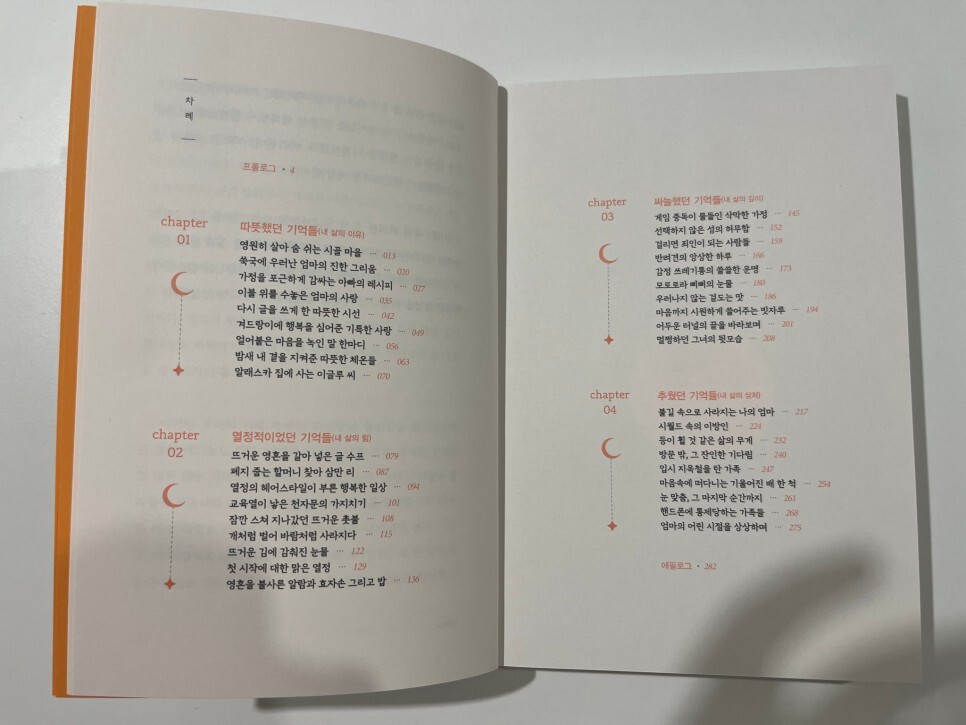 차례
프롤로그 • 4
chapter 01
따뜻했던 기억들(내 삶의 이유)
영원히 살아 숨 쉬는 시골 마을 ··· 013
쑥국에 우러난 엄마의 진한 그리움 ··· 020
가정을 포근하게 감싸는 아빠의 레시피 ··· 027
이불 위를 수놓은 엄마의 사랑 ··· 035
다시 글을 쓰게 한 따뜻한 시선 ··· 042
겨드랑이에 행복을 심어준 기특한 사랑 ··· 049
얼어붙은 마음을 녹인 말 한마디 ··· 056
밤새 내 곁을 지켜준 따뜻한 체온들 ··· 063
알래스카 집에 사는 이글루 씨 ··· 070
chapter 02
열정적이었던 기억들(내 삶의 힘)
뜨거운 영혼을 갈아 넣은 글 수프 ··· 079
폐지 줍는 할머니 찾아 삼만 리 ··· 087
열정의 헤어스타일이 부른 행복한 일상 ··· 094
교육열이 낳은 천자문의 가지치기 ··· 101
잠깐 스쳐 지나갔던 뜨거운 촛불 ··· 108
개처럼 벌어 바람처럼 사라지다 ··· 115
뜨거운 김에 감춰진 눈물 ··· 122
첫 시작에 대한 맑은 열정 ··· 129
영혼을 불사른 알람과 효자손 그리고 밥 ··· 136
chapter 03
싸늘했던 기억들(내 삶의 깊이)
게임 중독이 물들인 삭막한 가정 ··· 145
선택하지 않은 성의 허무함 ··· 152
걸리면 죄인이 되는 사람들 ··· 159
반려견의 앙상한 하루 ··· 166
감정 쓰레기통의 쓸쓸한 운명 ··· 173
모로로라 삐삐의 눈물 ··· 180
우러나지 않는 겉도는 맛 ··· 186
마음까지 시원하게 쓸어주는 빗자루 ··· 194
어두운 터널의 끝을 바라보며 ··· 201
멀쩡하던 그녀의 뒷모습 ··· 208
chapter 04
추웠던 기억들(내 삶의 상처)
불길 속으로 사라지는 나의 엄마 ··· 217
시월드 속의 이방인 ··· 224
등이 휠 것 같은 삶의 무게 ··· 232
방문 밖, 그 잔인한 기다림 ··· 240
임시 지옥철을 탄 가족 ··· 247
마음속에 떠다니는 기울어진 배 한 척 ··· 254
눈 맞춤, 그 마지막 순간까지 ··· 261
핸드폰에 통제당하는 가족들 ··· 268
엄마의 어린 시절을 상상하며 ··· 275
에필로그 • 282